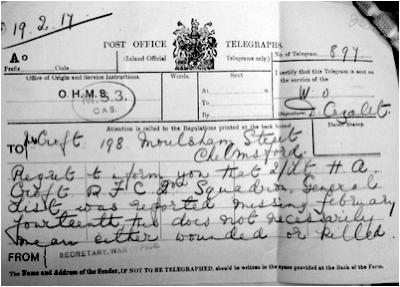 19.2.17
POST OFFICE TELEGRAPHS.
A o (Inland Official Telegrams only.) No. of Telegram 897
Prefix Code
Office of Origin and Service Instructions. Words. Sent I certify that this Telegram is sent on the service of the
O.H.M.S. At W.O
M.S.3. To
CAS. By Signature Cazalet.
Attention is called to the Regulations printed at the back hereof. Dated Stamp.
TO Croft 198 Moulsham Street
Chelmsford.
Regret to inform you that 2/Lt H A.
Croft R F C 2nd Squadron, General
List was reported missing February
fourteenth, this does not necessarily
mean either wounded or killed.
FROM SECRETARY, WAR OFFICE
The Name and Address of the Sender, IF NOT TO BE TELEGRAPHED, should be written in the space provided at the Back of the Form.